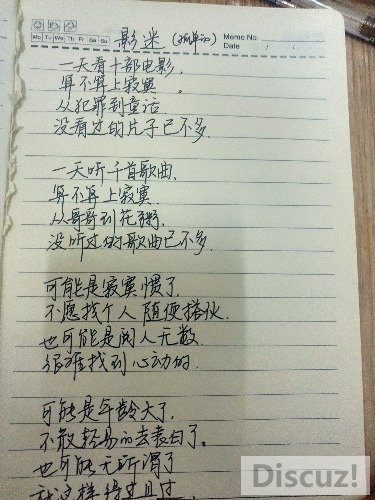 影迷(孤单的)
Memo No.
Mo Tu We Th Fr Sa Su
Date
一天看十部电影,
算不算上寂寞。
从犯罪到童话
没看过的片子已不多.
一天听千首歌曲.
算不算上寂寞
从哥哥到花粥.
没听过的歌曲已不多.
可能是寂寞惯了
不愿找个人随便搭伙.
也可能是阅人无数
很难找到心动的
可能是年龄大了.
不敢轻易的去表白了。
也可能无所谓了
就这样得过且过
Discuz!